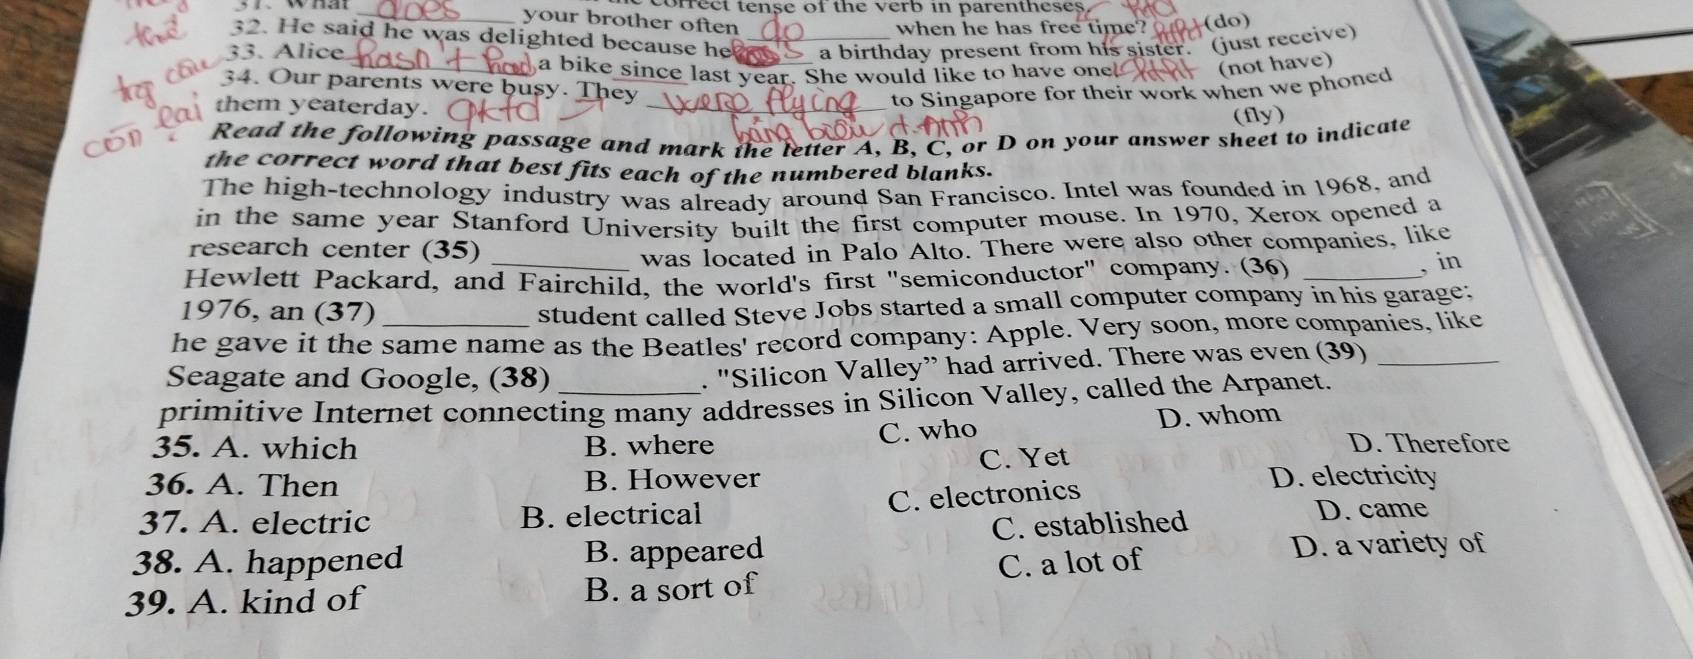 31. What does your brother often do when he has free time? (do)
32. He said he was delighted because he a birthday present from his sister. (just receive)
33. Alice hasn't had a bike since last year. She would like to have one. (not have)
34. Our parents were busy. They were flying to Singapore for their work when we phoned
them yeaterday. (fly)
Read the following passage and mark the letter A, B, C, or D on your answer sheet to indicate
the correct word that best fits each of the numbered blanks.
The high-technology industry was already around San Francisco. Intel was founded in 1968, and
in the same year Stanford University built the first computer mouse. In 1970, Xerox opened a
research center (35) ________ was located in Palo Alto. There were also other companies, like
Hewlett Packard, and Fairchild, the world's first "semiconductor" company. (36) ________, in
1976, an (37) ________ student called Steve Jobs started a small computer company in his garage;
he gave it the same name as the Beatles' record company: Apple. Very soon, more companies, like
Seagate and Google, (38) ________. "Silicon Valley" had arrived. There was even (39) ________
primitive Internet connecting many addresses in Silicon Valley, called the Arpanet.
35. A. which B. where C. who D. whom
36. A. Then B. However C. Yet D. Therefore
37. A. electric B. electrical C. electronics D. electricity
38. A. happened B. appeared C. established D. came
39. A. kind of B. a sort of C. a lot of D. a variety of